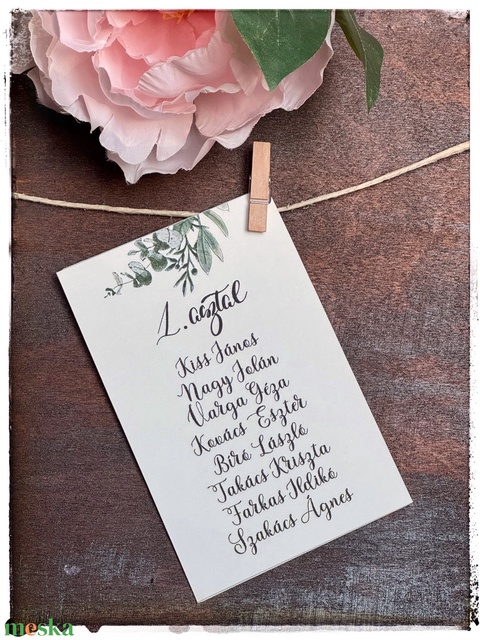 1. asztal
Kiss János
Nagy Jolán
Varga Géza
Kovács Eszter
Bíró László
Takács Kriszta
Farkas Ildikó
Szakács Ágnes
meska